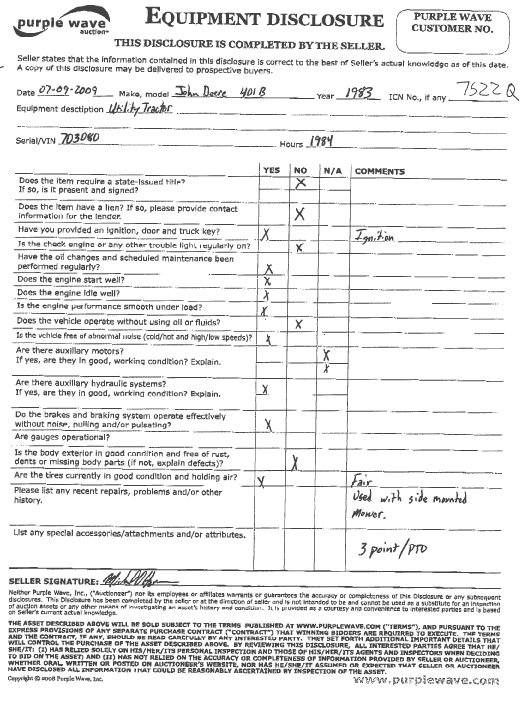 purple wave
auction
EQUIPMENT DISCLOSURE
PURPLE WAVE
CUSTOMER NO.
THIS DISCLOSURE IS COMPLETED BY THE SELLER.
Seller states that the information contained in this disclosure is correct to the best of Seller's actual knowledge as of this date.
A copy of this disclosure may be delivered to prospective buyers.
Date 07-09-2009 Make, model John Deere 401 B Year 1983 ICN No., if any 7522 Q
Equipment desctiption Utility Tractor
Serial/VIN 703080 Hours 1984
YES NO N/A COMMENTS
Does the item require a state-issued title? X
If so, is it present and signed?
Does the item have a lien? If so, please provide contact
information for the lender. X
Have you provided an ignition, door and truck key? X Ignition
Is the check engine or any other trouble light regularly on? X
Have the oil changes and scheduled maintenance been
performed regularly? X
Does the engine start well? X
Does the engine idle well? X
Is the engine performance smooth under load? X
Does the vehicle operate without using oil or fluids? X
Is the vehicle free of abnormal noise (cold/hot and high/low speeds)? X
Are there auxiliary motors? X
If yes, are they in good, working condition? Explain. X
Are there auxiliary hydraulic systems? X
If yes, are they in good, working condition? Explain.
Do the brakes and braking system operate effectively
without noise, pulling and/or pulsating? X
Are gauges operational?
Is the body exterior in good condition and free of rust,
dents or missing body parts (if not, explain defects)? X
Are the tires currently in good condition and holding air? X Fair
Please list any recent repairs, problems and/or other
history. Used with side mounted
Mower.
List any special accessories/attachments and/or attributes.
3 point/PTO
SELLER SIGNATURE:
Neither Purple Wave, Inc., ("Auctioneer") nor its employees or affiliates warrants or guarantees the accuracy or completeness of this Disclosure or any subsequent
disclosures. This Disclosure has been completed by the seller or at the direction of seller and is not intended to be and cannot be used as a substitute for an inspection
of auction assets or any other means of investigating an asset's history and condition. It is provided as a courtesy and convenience to interested parties and is based
on Seller's current actual knowledge.
THE ASSET DESCRIBED ABOVE WILL BE SOLD SUBJECT TO THE TERMS PUBLISHED AT WWW.PURPLEWAVE.COM ("TERMS"), AND PURSUANT TO THE
EXPRESS PROVISIONS OF ANY SEPARATE PURCHASE CONTRACT ("CONTRACT") THAT WINNING BIDDERS ARE REQUIRED TO EXECUTE. THE TERMS
AND THE CONTRACT, IF ANY, SHOULD BE READ CAREFULLY BY ANY INTERESTED PARTY. THEY SET FORTH ADDITIONAL IMPORTANT DETAILS THAT
WILL CONTROL THE PURCHASE OF THE ASSET DESCRIBED ABOVE. BY REVIEWING THIS DISCLOSURE, ALL INTERESTED PARTIES AGREE THAT HE/
SHE/IT: (I) HAS RELIED SOLELY ON HIS/HER/ITS PERSONAL INSPECTION AND THOSE OF HIS/HER/ITS AGENTS AND INSPECTORS WHEN DECIDING
TO BID ON THE ASSET; AND (II) HAS NOT RELIED ON THE ACCURACY OR COMPLETENESS OF INFORMATION PROVIDED BY SELLER OR AUCTIONEER,
WHETHER ORAL, WRITTEN OR POSTED ON AUCTIONEER'S WEBSITE, NOR HAS HE/SHE/IT ASSUMED OR EXPECTED THAT SELLER OR AUCTIONEER
HAVE DISCLOSED ALL INFORMATION THAT COULD BE REASONABLY ASCERTAINED BY INSPECTION OF THE ASSET.
Copyright © 2008 Purple Wave, Inc.
www.purplewave.com